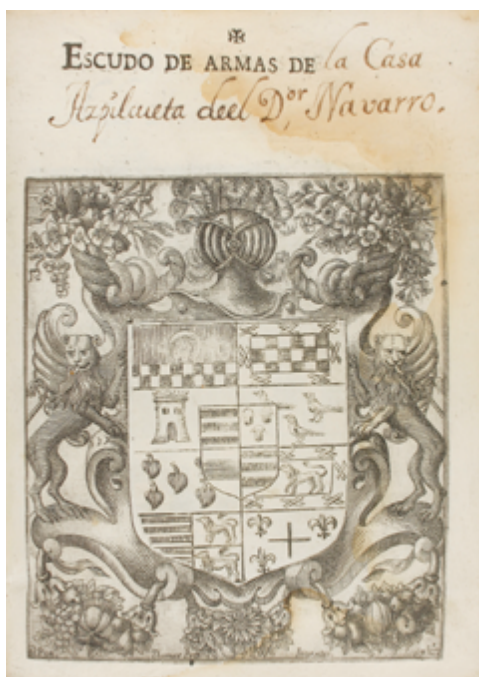 ESCUDO DE ARMAS DE la Casa
Azpilcueta deel D.or Navarro.